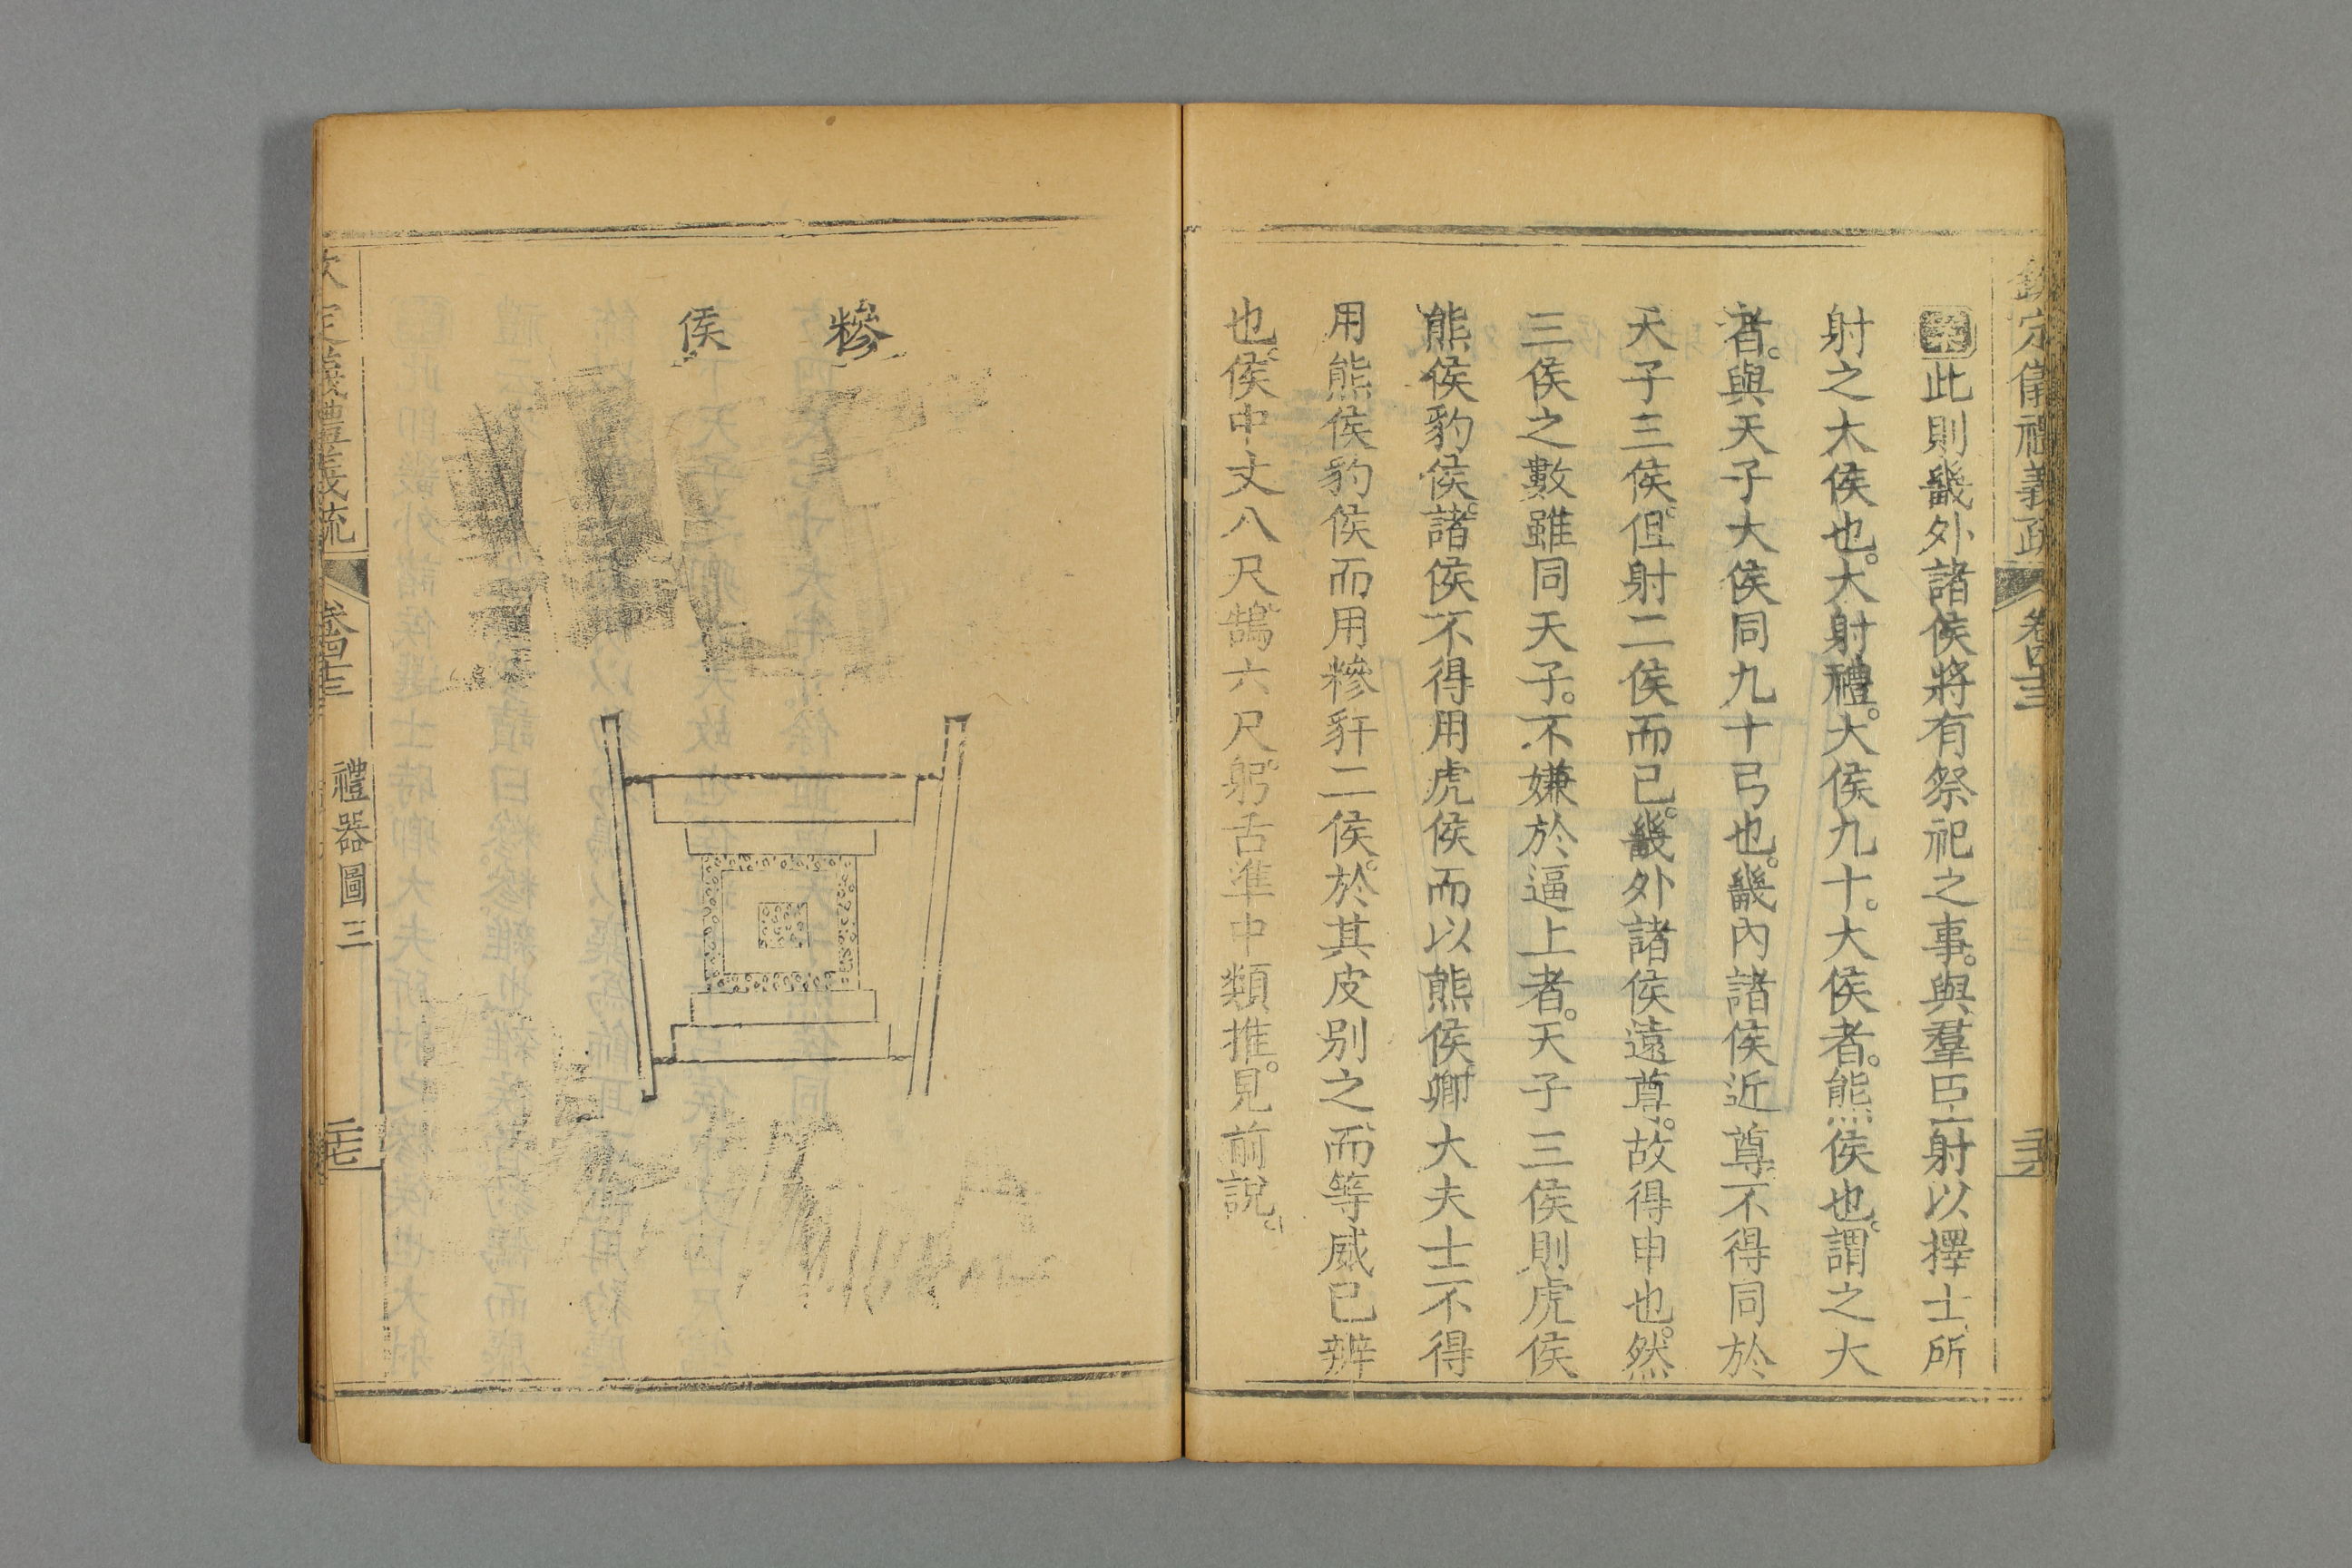 欽定儀禮義疏 卷四十三
此則畿外諸侯將有祭祀之事。與羣臣射以擇士所
射之大侯也。大射禮。大侯九十。大侯者。熊侯也。謂之大
者。與天子大侯同九十弓也。畿內諸侯近尊不得同於
天子三侯。但射二侯而已。畿外諸侯遠尊。故得申也。然
三侯之數雖同天子。不嫌於逼上者。天子三侯則虎侯
熊侯豹侯。諸侯不得用虎侯而以熊侯。卿大夫士不得
用熊侯豹侯而用糝豻二侯。於其皮別之、而等威已辨
也。侯中丈八尺。鵠六尺。躬舌準中類推。見前說。
糝
侯
欽定儀禮義疏 卷四十三 禮器圖三 二七